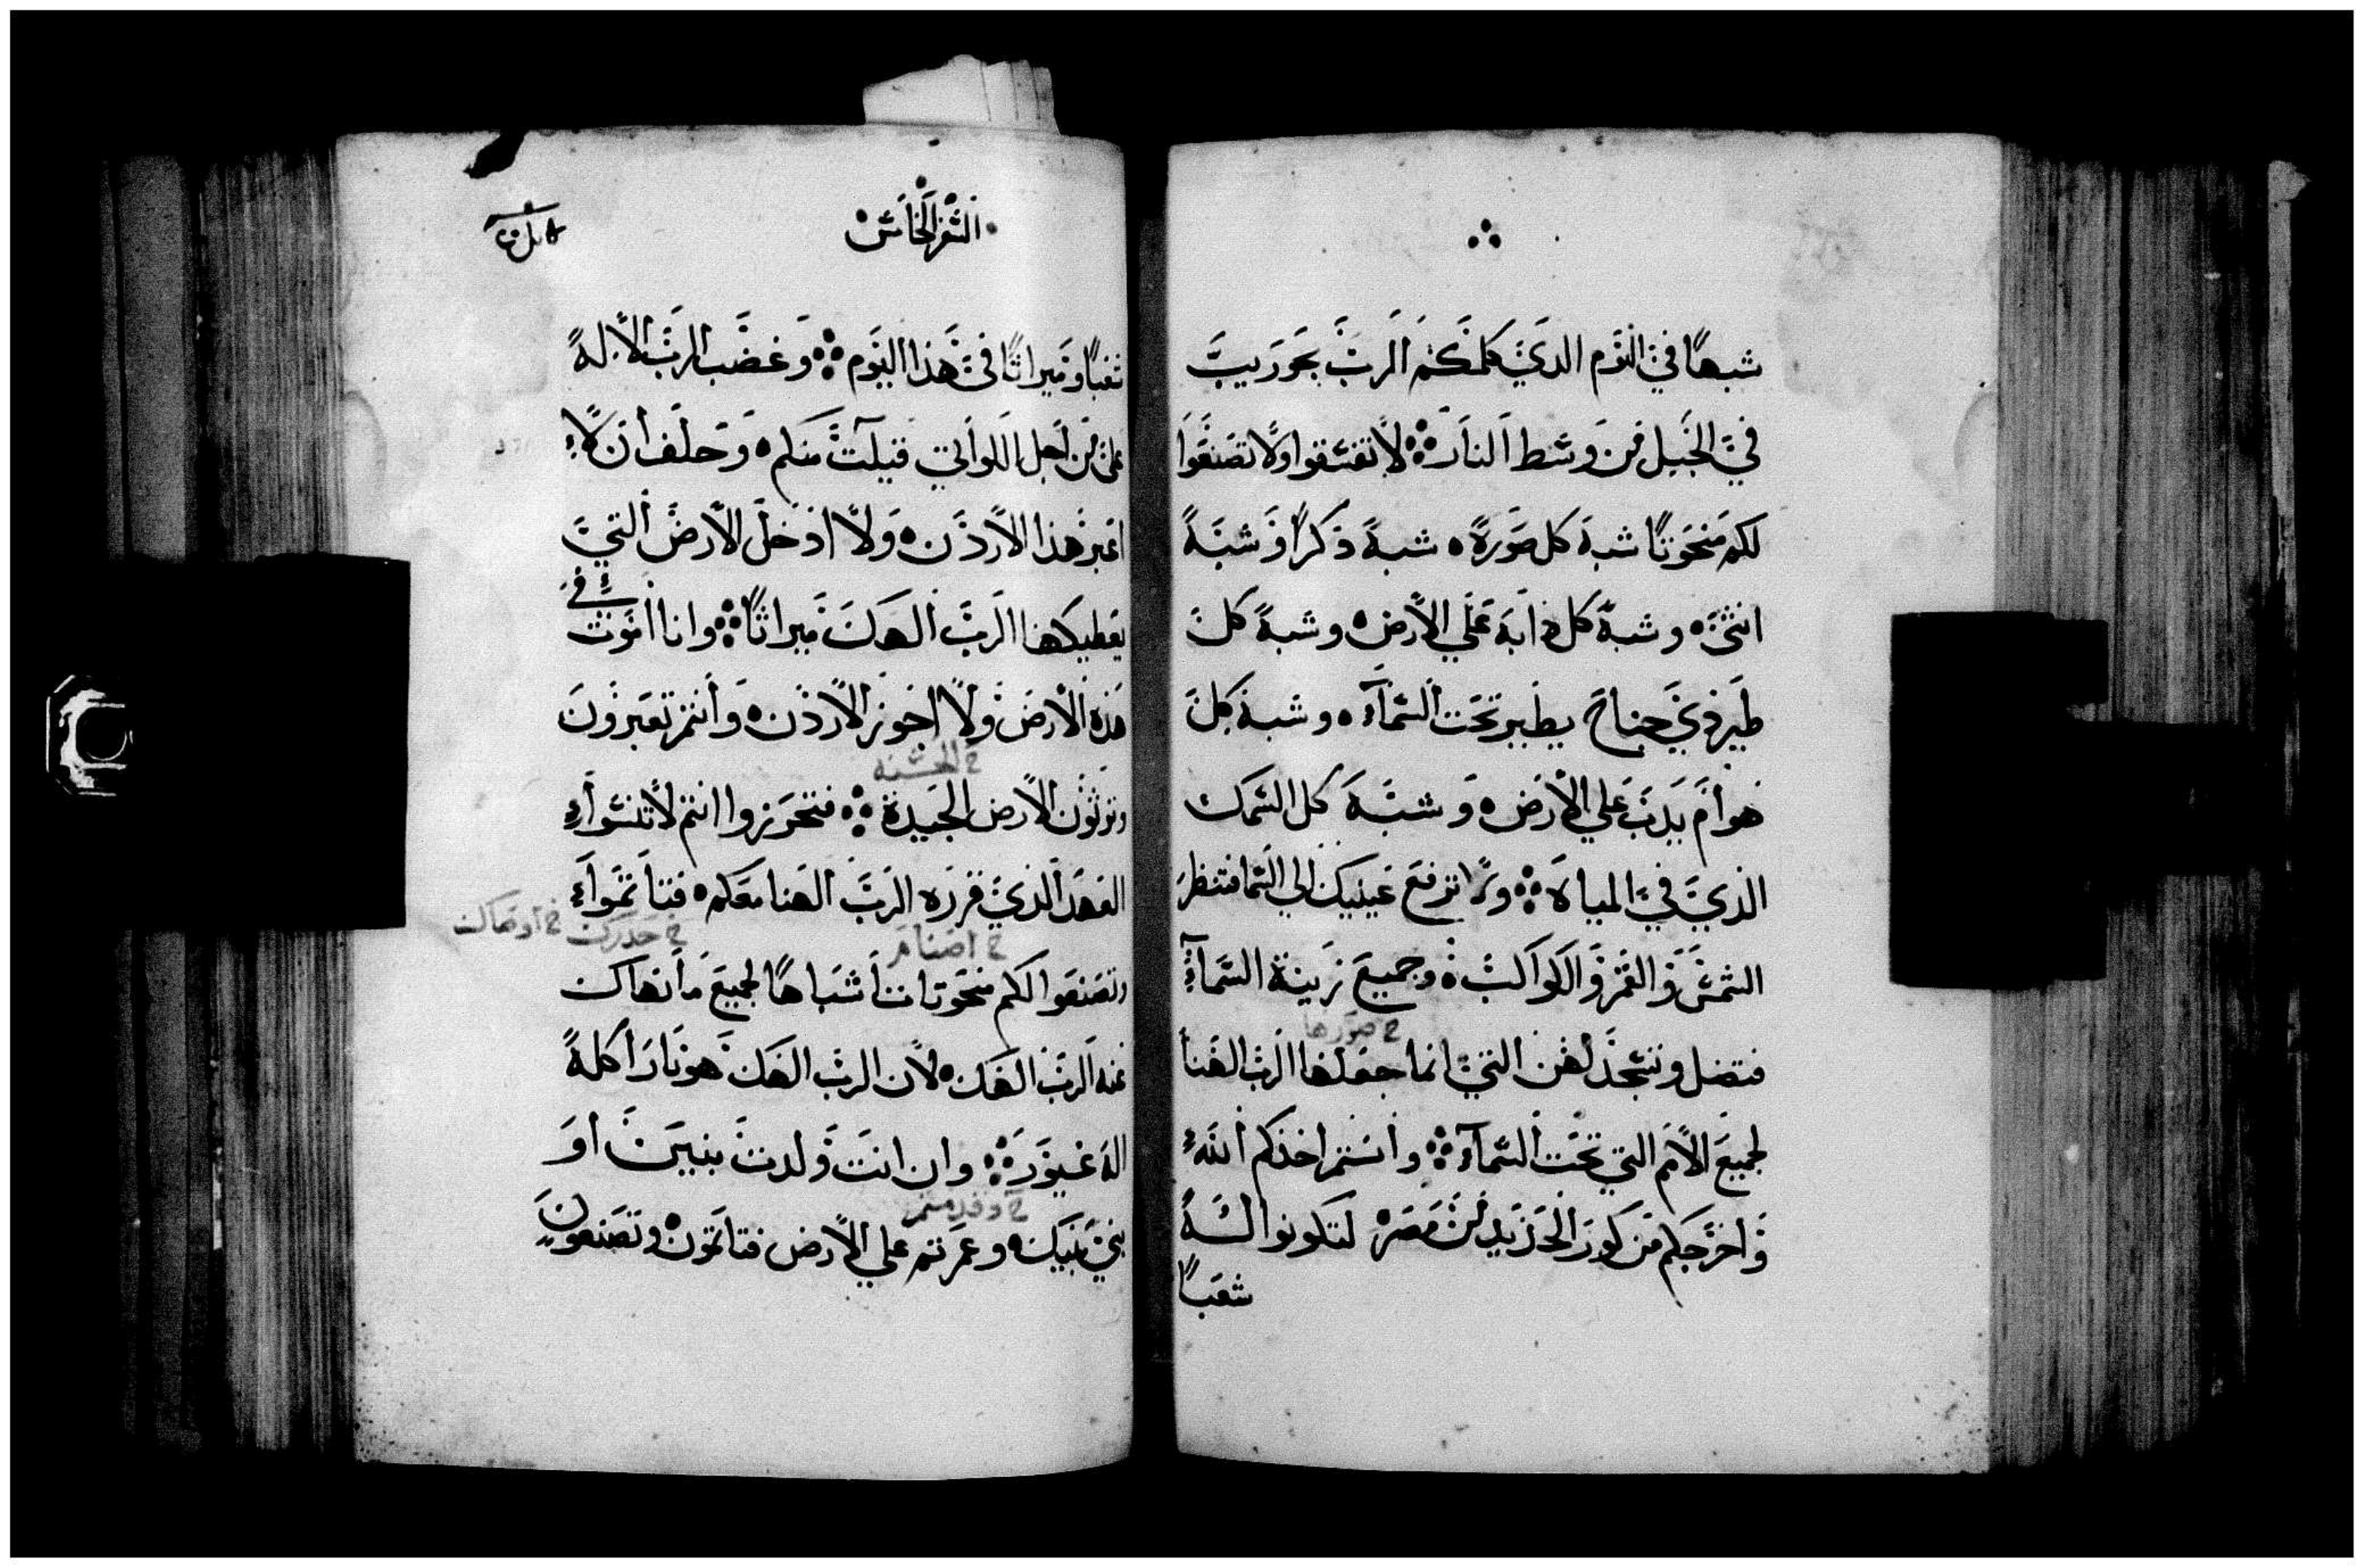 شبهًا في اليَوم الدي كلمكم الرب بجوريب
في الجبل من وسط النار ۞ لا تفسقوا ولا تصنعوا
لكم منحوتًا شبه كل صورة ۰ شبه ذكرًا وشبه
انثي ۰ وشبه كل دابة علي الارض ۰ وشبه كل
طير ذي جناح يطير تحت السمآء ۰ وشبه كل
هوام يدب علي الارض ۰ وشبه كل السمك
الذي في المياه ۞ ولا ترفع عينيك الي السما فتنظر
الشمس والقمر والكواكب ۰ وجميع زينة السمآء
خ صورها
فتضل وتسجد لهن التي انما جعلها الرب الهنا
لجميع الامم التي تحت السمآء ۞ وانتم اخذكم الله
واخرجكم من كور الحديد من مصر لتكونوا له
شعبًا
السفر الخامس
شعبًا وميراثًا في هذا اليوم ۞ وغضب الرب الاله
علي من اجل اللواتي قيلت منكم ۰ وحلف ان لا
اعبر هذا الاردن ۰ ولا ادخل الارض التي
يعطيكها الرب الهك ميراثًا ۞ وانا اموت في
هذه الارض ولا اجوز الاردن ۰ وانتم تعبرون
خ الحسنه
وترثون الارض الجيدة ۞ فتحرزوا انتم لا تنسوا
العهد الذي قرره الرب الهنا معكم ۰ فتاتموا
خ اصنام خ حدرك خ اوصاك
وتصنعوا لكم منحوتات اشباهًا لجميع ما نهاك
عنه الرب الهك ۰ لان الرب الهك هو نار اكلة
اله غيور ۞ وان انت ولدت بنين او
خ وقدمتم
بني بنيك ۰ وعمرتم علي الارض فتاتمون وتصنعون